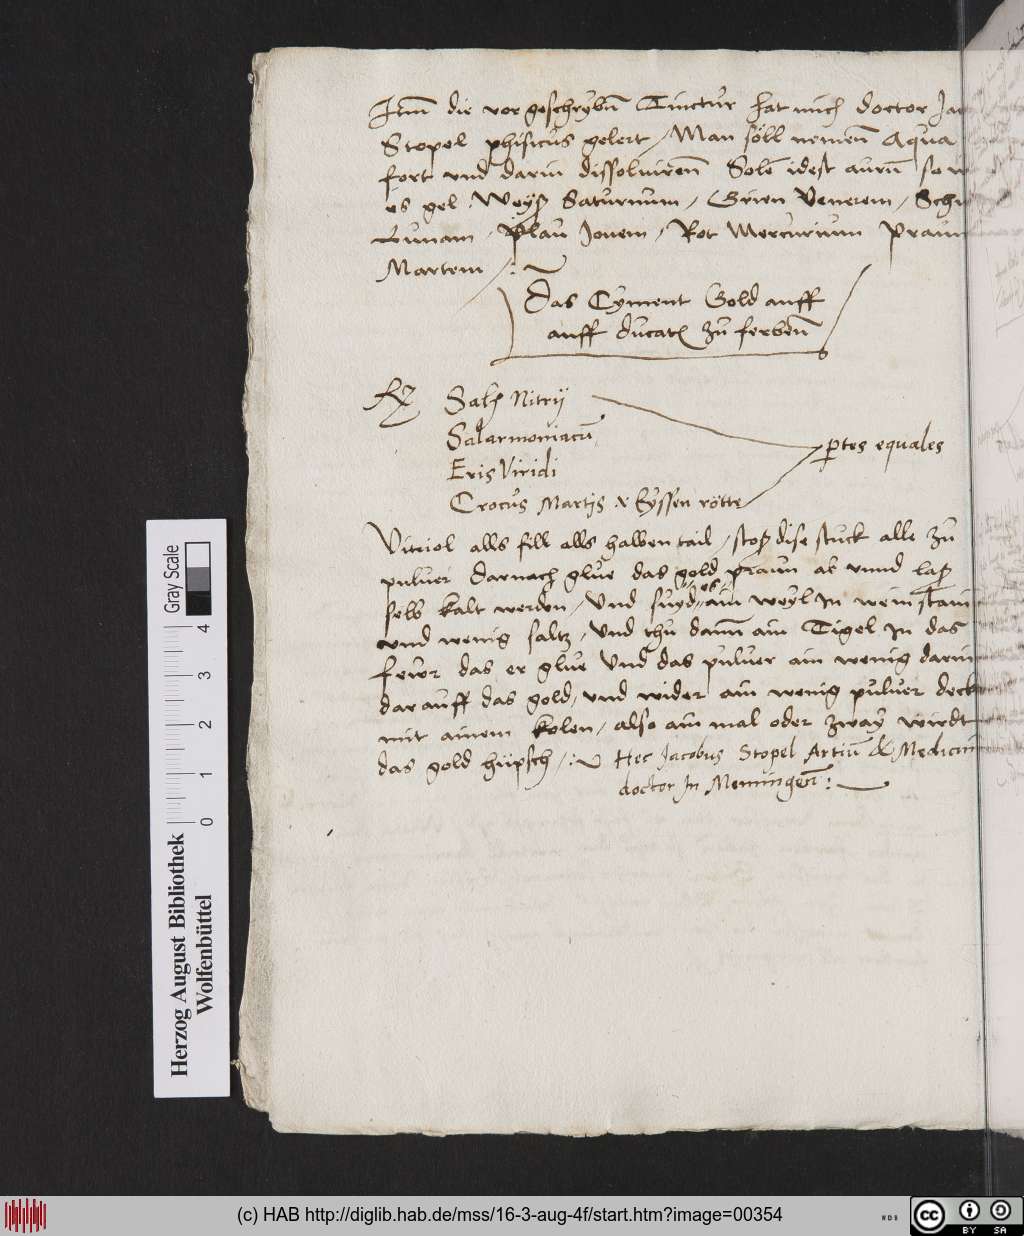 Item die vor geschrybn Tinctur hat mich doctor Ja
Stopel phisicus gelert / Man söll nemen Aqua
fort vnd darin dissoluiren Solē idest aurū so w
es gel . Weyß Saturnum / Grien Venerem / Schw
Lunam / Plau Jouem / Rot Mercurium Praun
Martem /:
Das Cyment Gold auff
auff ducatē zu ferben
Rz Salis Nitrij
Salarmoniacū
Eris Viridi
Crocus Martis v Eyssen rötte
ptes equales
Vitriol alls fill alls halben tail / stoß dise stuck alle zu
puluer Darnach glue das gold praun ab vnnd laß
selb kalt werden / Vnd suyd es ain weyl In wein stain
vnd wenig saltz / Vnd thu dann ain Tigel In das
fewr das er glue Vnd das puluer ain wenig darin
dar auff das gold / vnd wider ain wenig puluer deck
mit ainem kolen / also ain mal oder zway wirdt
das gold hüpsch /: Hec Jacobus Stopel Artiū & Medicin
doctor In Memingen :
Gray Scale
0 1 2 3 4
Herzog August Bibliothek
Wolfenbüttel
(c) HAB http://diglib.hab.de/mss/16-3-aug-4f/start.htm?image=00354
WDB
cc BY SA